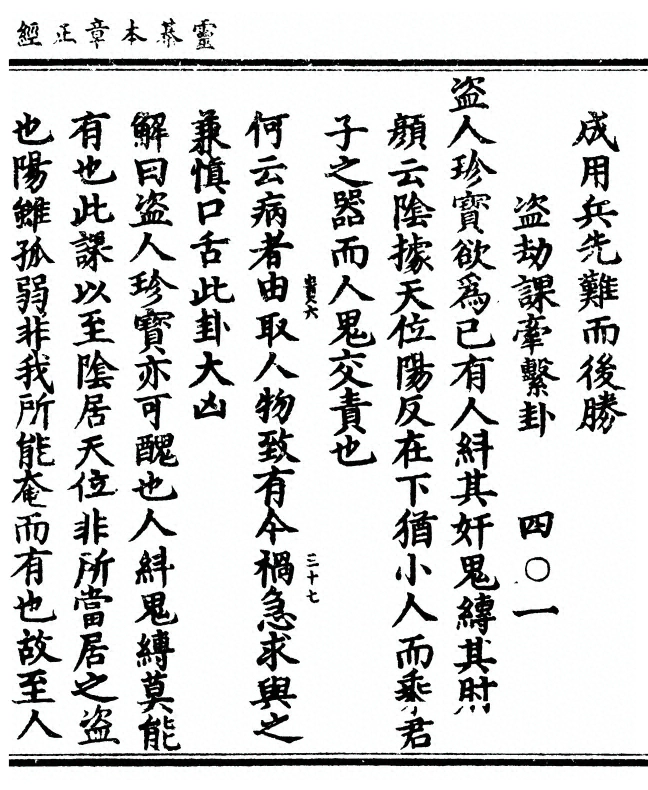 經正章本棊靈
成用兵先難而後勝
盗劫課牽繫卦 四〇一
盗人珍寶欲爲已有人糾其奸鬼縛其肘
顔云陰據天位陽反在下猶小人而乘君
子之器而人鬼交責也
何云病者由取人物致有今禍急求與之
兼慎口舌此卦大凶
解曰盗人珍寶亦可醜也人糾鬼縛莫能
有也此課以至陰居天位非所當居之盗
也陽雖孤弱非我所能奄而有也故至人
三十七